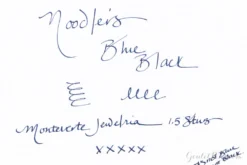 Noodler's
Blue
Black
Monteverde Jewelria 1.5 Stub
xxxxx